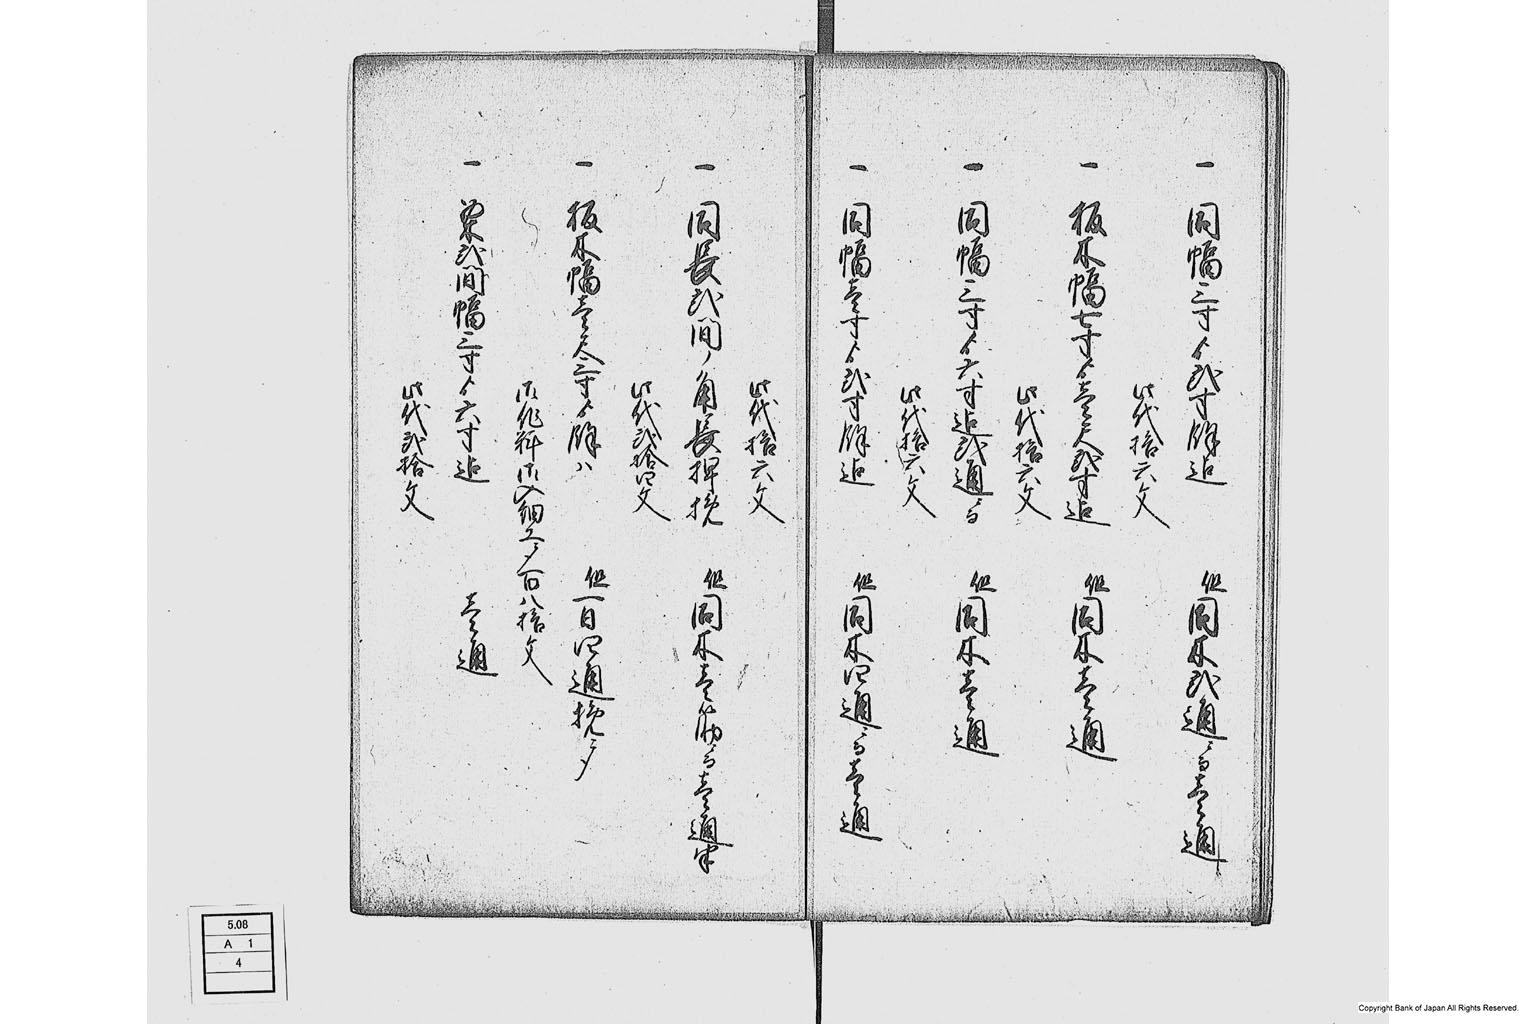 一 同幅三寸ゟ弐寸餘迄 但同木弐通ニ而壱通
此代拾六文
一 板木幅七寸ゟ壱尺弐寸迄 但同木壱通
此代拾六文
一 同幅三寸ゟ六寸迄弐通ニ而 但同木壱通
此代拾六文
一 同幅壱寸ゟ弐寸餘迄 但同木四通ニ而壱通
此代拾六文
一 同長弐間ノ角長押挽 但同木壱筋ニ而壱通半
此代弐拾四文
一 板木幅壱尺三寸ゟ餘ハ 但一日四通挽ニ〆
御作料御入細工ニ〆百八拾文
一 栗弐間幅三寸ゟ六寸迄 壱通
此代弐拾文
5.08
A 1
4
Copyright Bank of Japan All Rights Reserved.